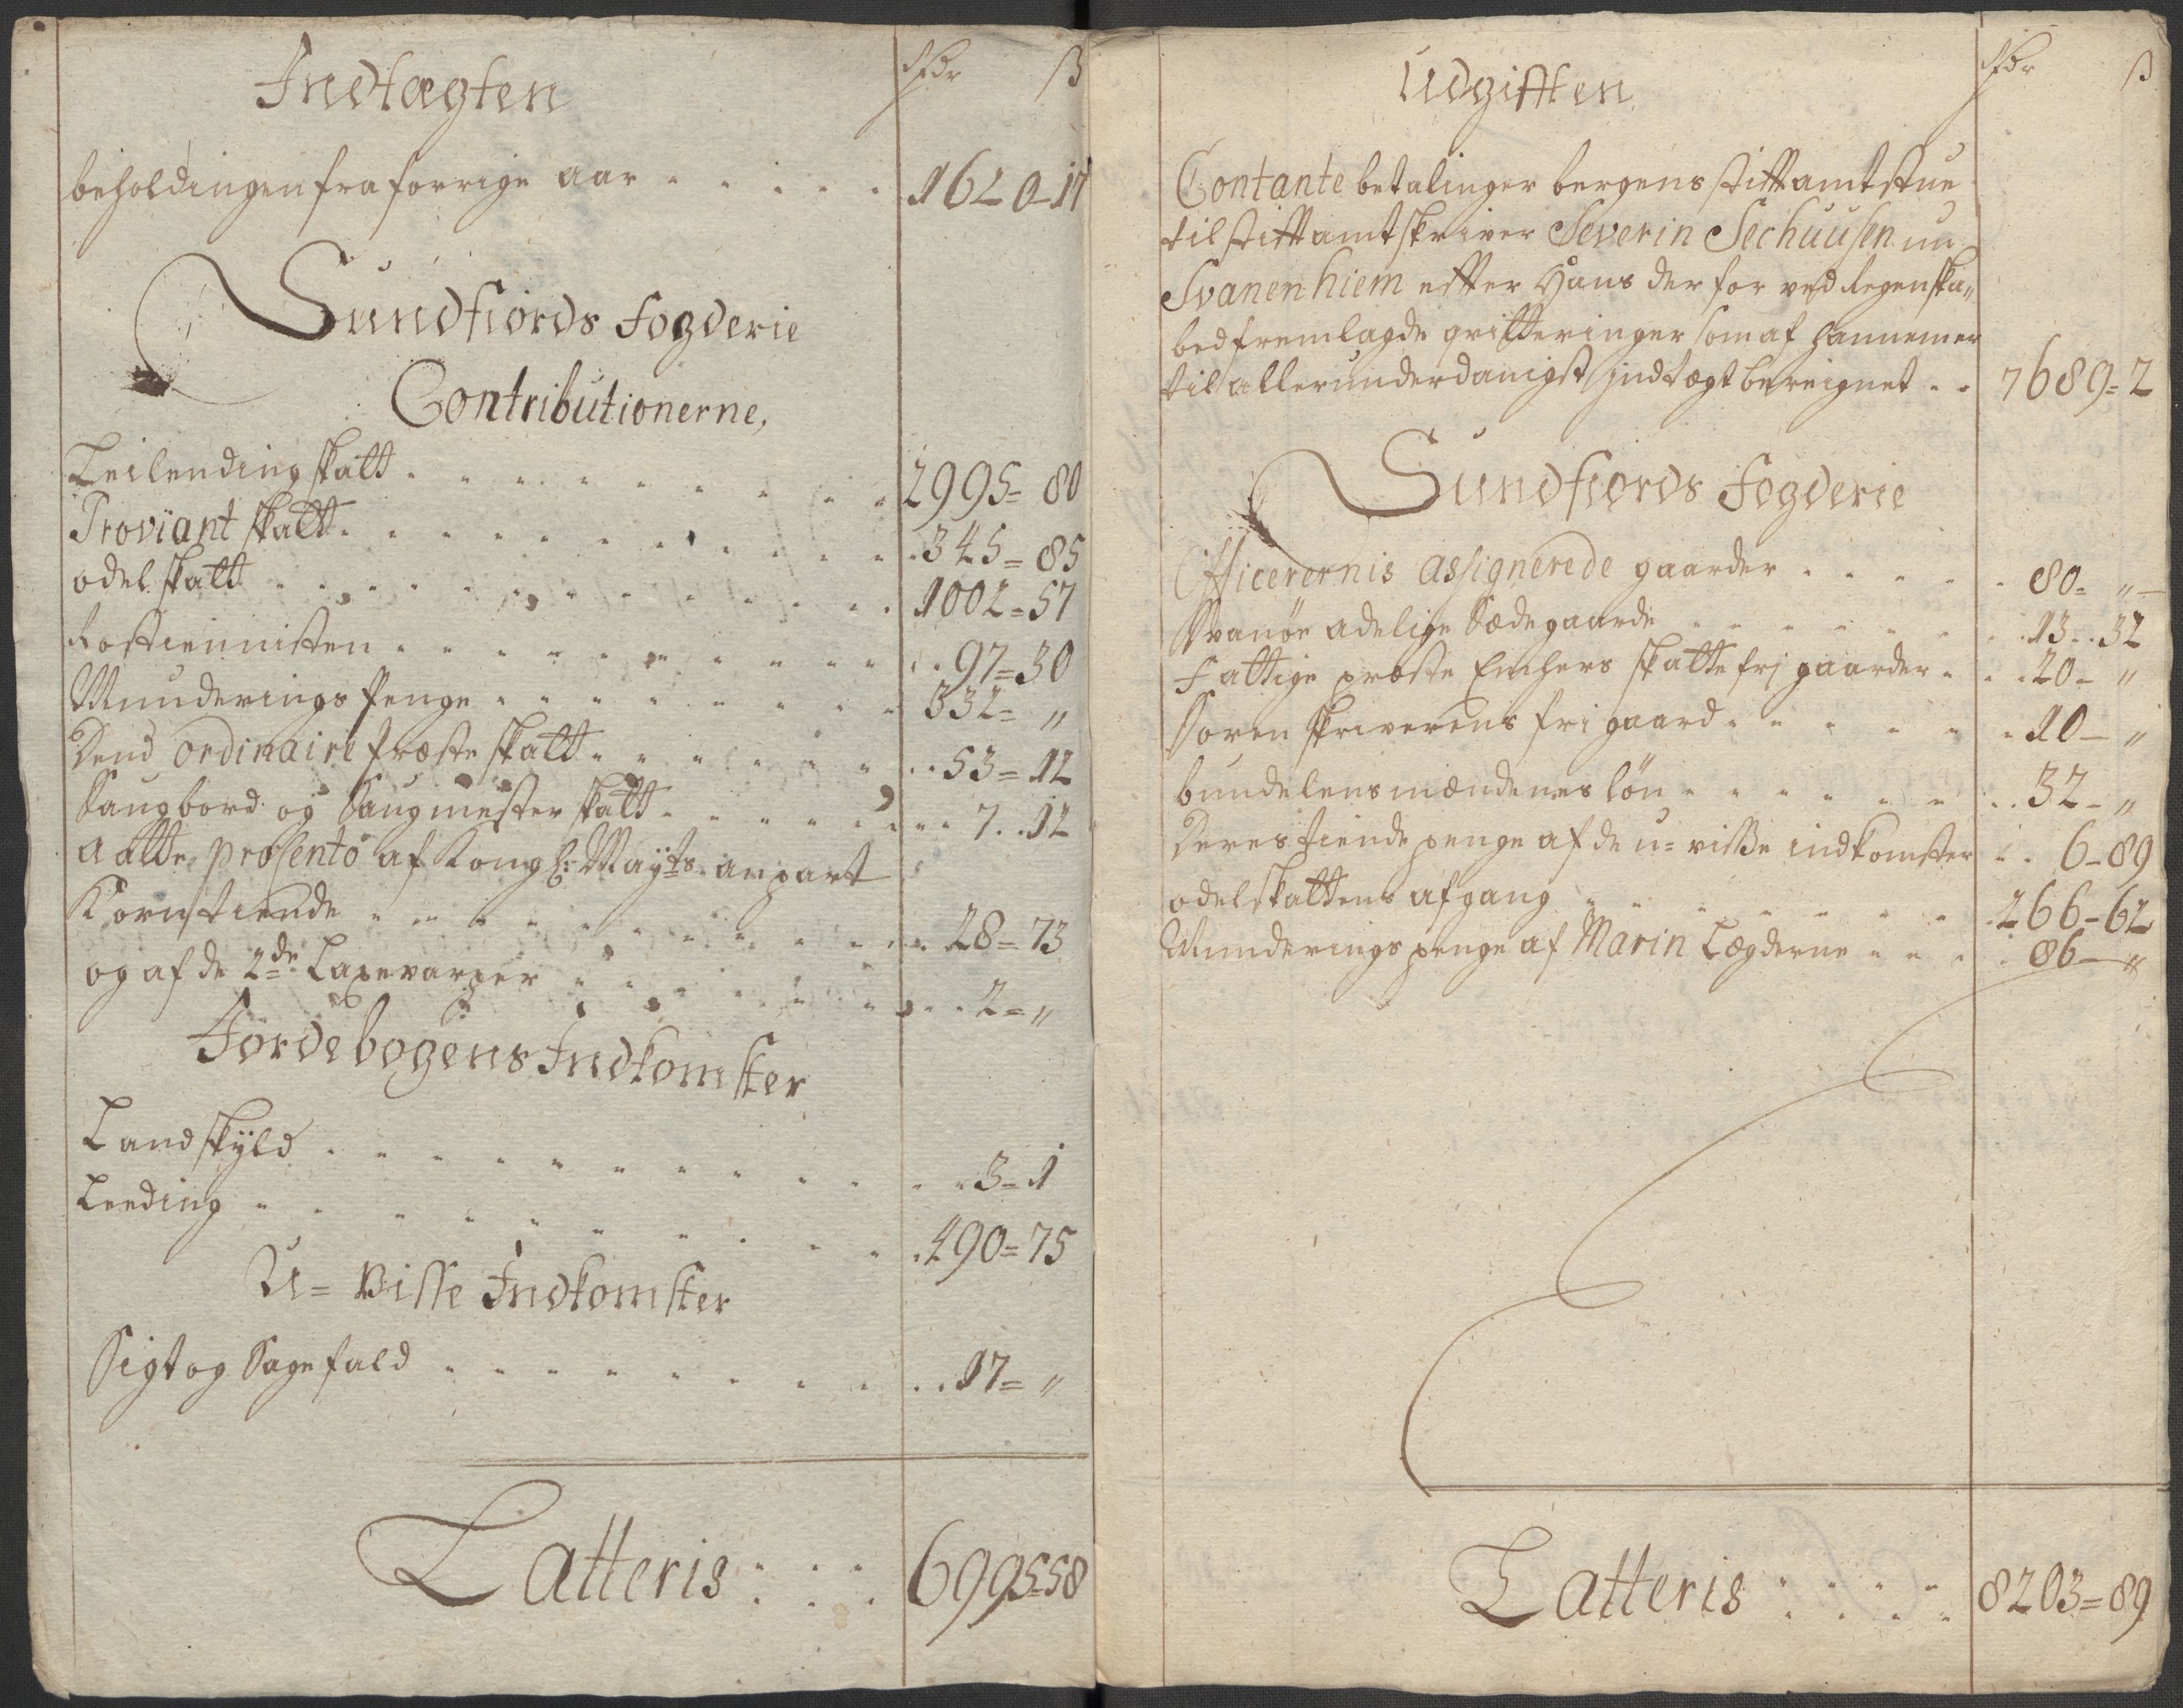 Indtægten
Rdr ß
beholdingen fra forrige aar . . . . . 1620-17
Sundfiords Fogderie
Contributionerne,
Leilending skatt . . . . . . . . . 2995=80
Proviant skatt . . . . . . . . . . 345=85
odel skatt . . . . . . . . . . . 1002=57
Rostiennisten . . . . . . . . . . 97=30
Munderings Penge . . . . . . . . 332= "
Dend ordinaire Præste skatt . . . . . . . 53=12
Saugbord og Saugmester skatt . . . . . . . 7..12
aatte prosento af Kongl: Mayts. anpart
Korntiende . . . . . . . . . . . 28=73
og af de 2de Laxevarper . . . . . . . . 2= "
Jordebogens Indkomster
Landskyld . . . . . . . . . . . 3=1
Leeding . . . . . . . . . . . 490=75
U= Visse Indkomster
Sigt og Sagefald . . . . . . . . . . 17= "
Latteris . . . . . 6995=58
Udgifften
Rdr ß
Contante betalinger bergens stifftamtstue
til stifftamtskriver Severin Sechuusen nu
Svanenhiem effter Hans derfor ved Regenska„
bed fremlagde qvitteringer som af hannem er
til allerunderdanigst indtægt bereignet . . 7689=2
Sundfiords Fogderie
Officerernis assignerede gaarder . . . . . 80= "
Svanöe adelige Sædegaarde . . . . . . . 13..32
Fattige præste Enchers skatte frj gaarder . . . 20- "
Soren skriverens fri gaard . . . . . . 10- "
bundelensmændenes lön . . . . . . . . 32- "
Deres tiende penge af de u=visse indkomster . . 6-89
odelskattens afgang . . . . . . . . 266-62
Munderings penge af Marin Lægderne . . . . 86- "
Latteris . . . . . . 8203=89